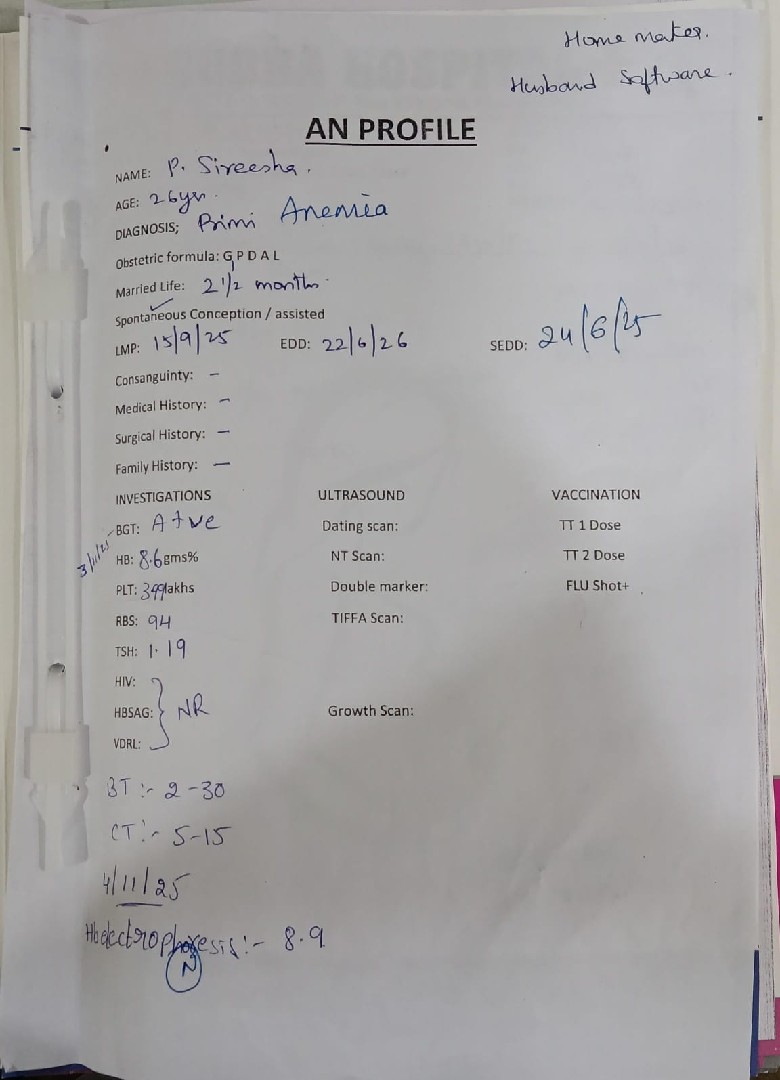 Home maker.
Husband Software.
AN PROFILE
NAME: P. Sireesha.
AGE: 26yr.
DIAGNOSIS; Primi Anemia
Obstetric formula: G1 P D A L
Married Life: 2 1/2 months.
Spontaneous Conception / assisted
LMP: 15/9/25 EDD: 22/6/26 SEDD: 24/6/25
Consanguinty: -
Medical History: -
Surgical History: -
Family History: -
INVESTIGATIONS ULTRASOUND VACCINATION
BGT: A +ve Dating scan: TT 1 Dose
3/11/25 HB: 8.6gms% NT Scan: TT 2 Dose
PLT: lakhs Double marker: FLU Shot+
RBS: 94 TIFFA Scan:
TSH: 1.19
HIV:
HBSAG: } NR Growth Scan:
VDRL:
BT :- 2-30
CT :- 5-15
4/11/25
Hb electrophoresis :- 8.9
N